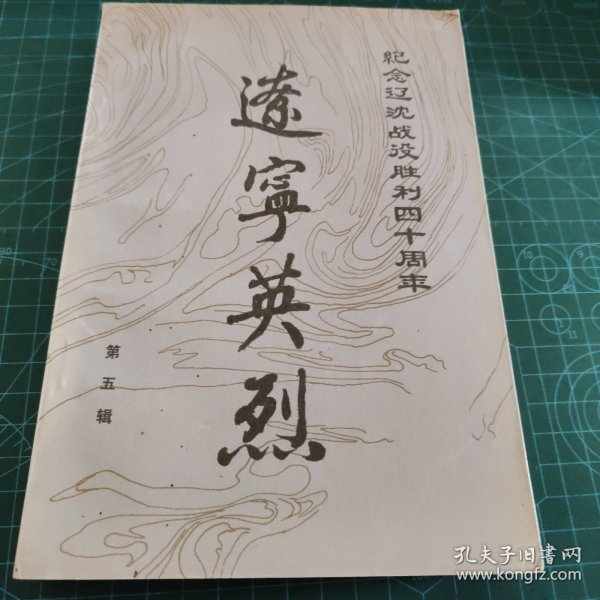 纪念辽沈战役胜利四十周年
遼寧英烈
第五辑
孔夫子旧书网
www.kongfz.com